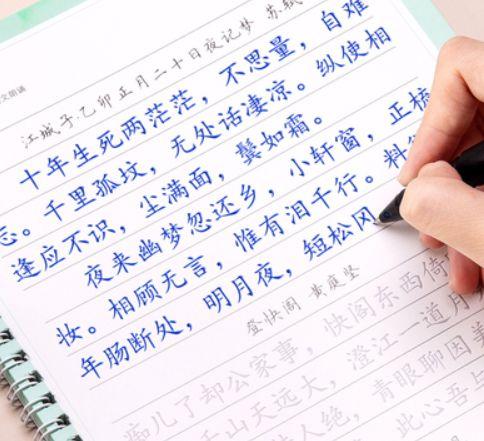 文朗诵
江城子·乙卯正月二十日夜记梦 苏轼
十年生死两茫茫，不思量，自难
忘。千里孤坟，无处话凄凉。纵使相
逢应不识，尘满面，鬓如霜。
夜来幽梦忽还乡，小轩窗，正梳
妆。相顾无言，惟有泪千行。料
年肠断处，明月夜，短松冈
登快阁 黄庭坚
痴儿了却公家事，快阁东西倚
千山天远大，澄江一道月
人绝，青眼聊因美
此心吾与